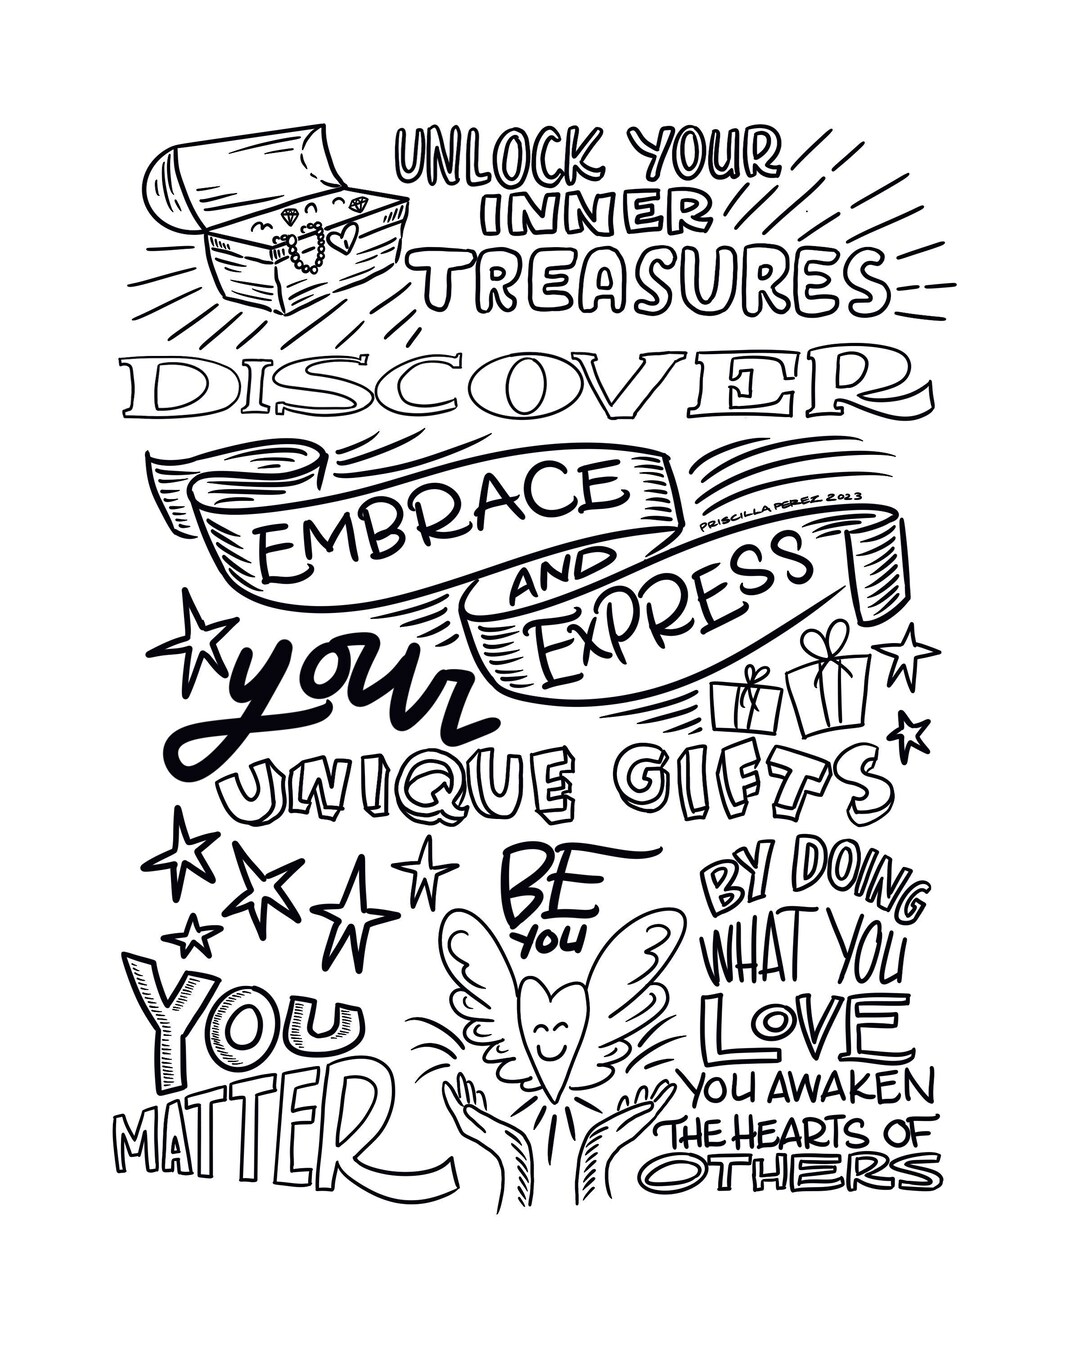 UNLOCK YOUR
INNER
TREASURES
DISCOVER
EMBRACE
AND
EXPRESS
PRISCILLA PEREZ 2023
your
UNIQUE GIFTS
BE
YOU
YOU
MATTER
BY DOING
WHAT YOU
LOVE
YOU AWAKEN
THE HEARTS OF
OTHERS